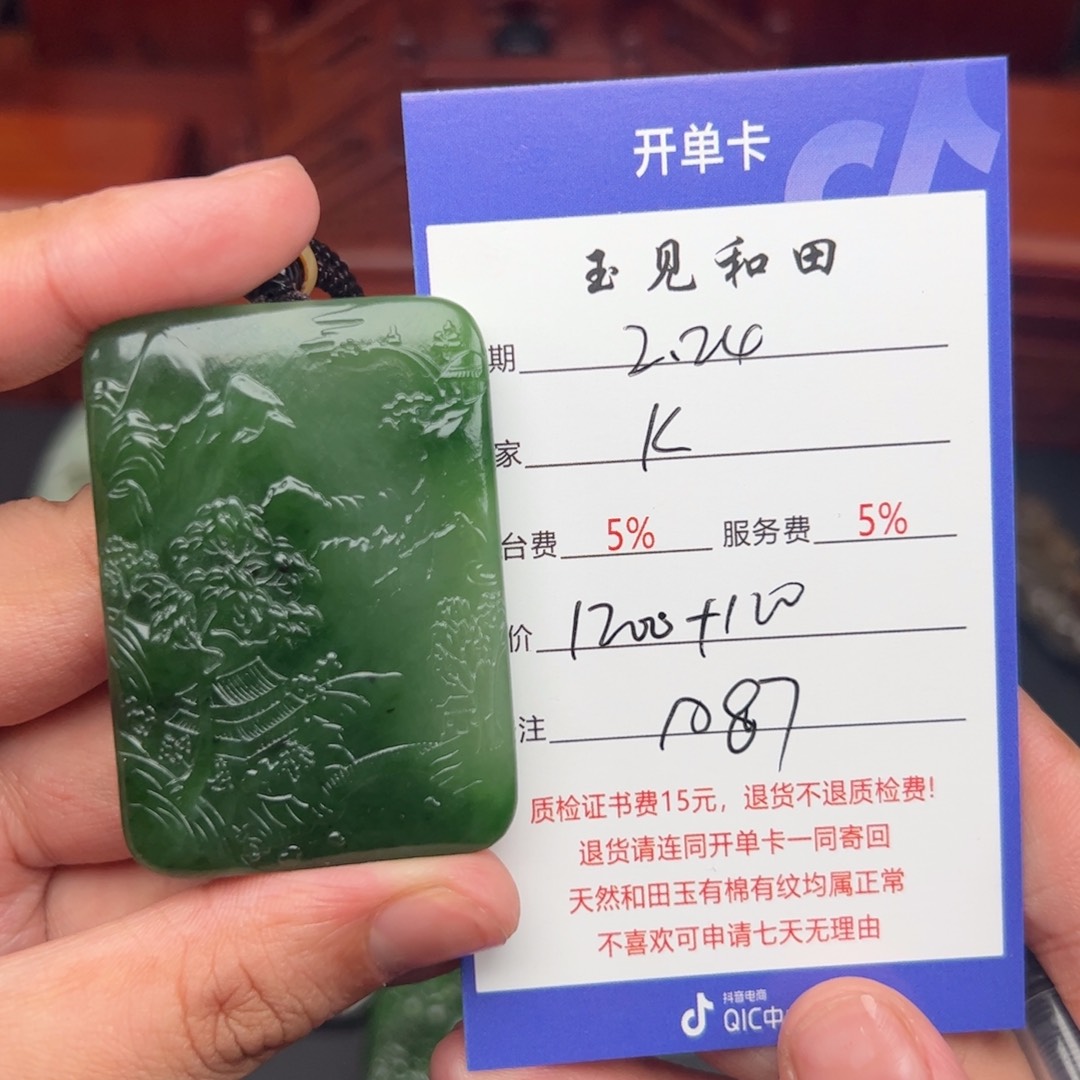 开单卡
玉见和田
期 2.24
家 K
台费 5% 服务费 5%
价 1200+100
注 1087
质检证书费15元，退货不退质检费！
退货请连同开单卡一同寄回
天然和田玉有棉有纹均属正常
不喜欢可申请七天无理由
抖音电商
QIC中